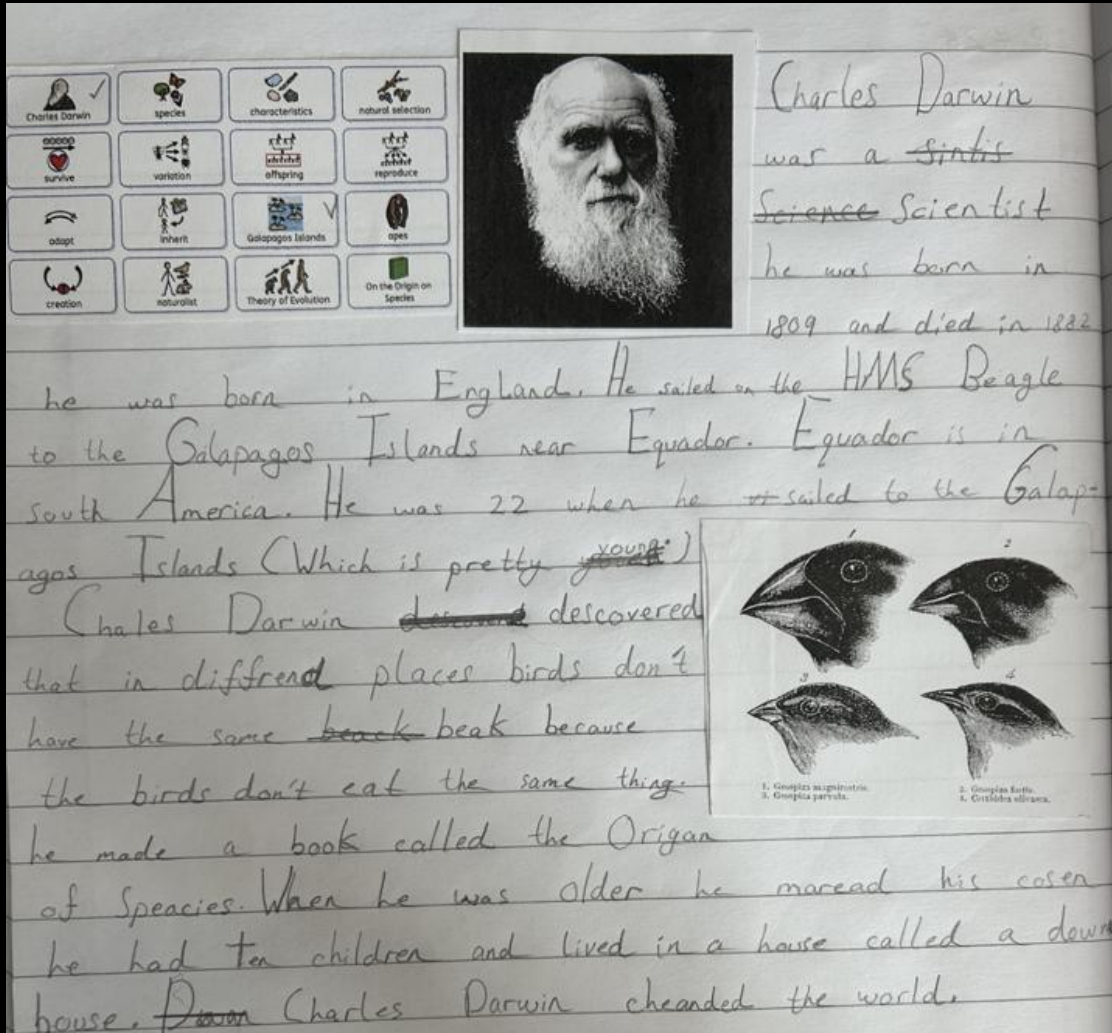 Charles Darwin
species
characteristics
natural selection
survive
variation
offspring
reproduce
adapt
inherit
Galapagos Islands
apes
creation
naturalist
Theory of Evolution
On the Origin on
Species
Charles Darwin
was a sintis
Science Scientist
he was born in
1809 and died in 1882
he was born in England. He sailed on the HMS Beagle
to the Galapagos Islands near Equador. Equador is in
South America. He was 22 when he sailed to the Galap-
agos Islands (Which is pretty young.)
Chales Darwin descovered
that in diffrend places birds don't
have the same beack beak because
the birds don't eat the same thing.
he made a book called the Origan
of Speacies. When he was older he maread his cosen
he had ten children and lived in a house called a down
house. Charles Darwin cheanded the world.
1
2
3
4
1. Geospiza magnirostris.
2. Geospiza fortis.
3. Geospiza parvula.
4. Certhidea olivacea.